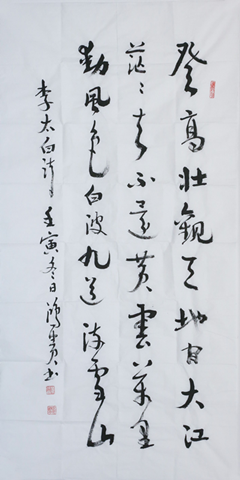 登高壮觀天地間大江
茫茫去不還黄雲萬里
動風色白波九道流雪山
李太白詩壬寅冬日鴻貴书